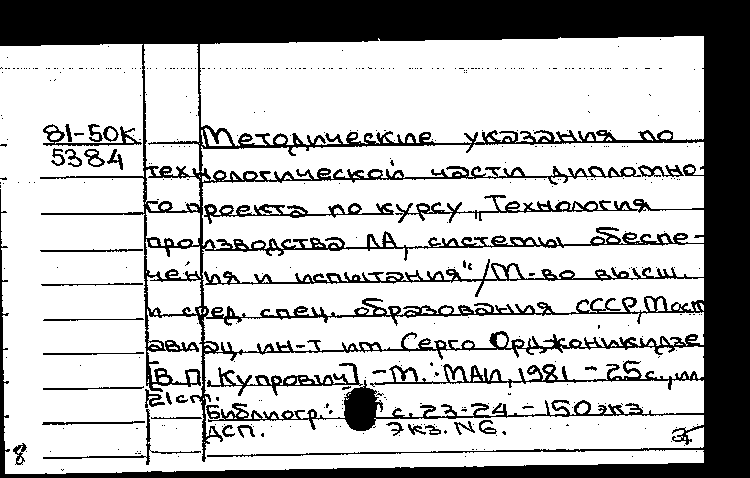 81-50К
5384
Методические указания по
технологической части дипломно-
го проекта по курсу „Технология
производства ЛА, системы обеспе-
чения и испытания"/М-во высш.
и сред. спец. образования СССР, Моск
авиац. ин-т им. Серго Орджоникидзе
[В.П. Купрович]. -М.: МАИ, 1981. - 25с., ил.
21см.
Библиогр.: с. 23-24. - 150 экз.
ДСП. Экз. №6.
8